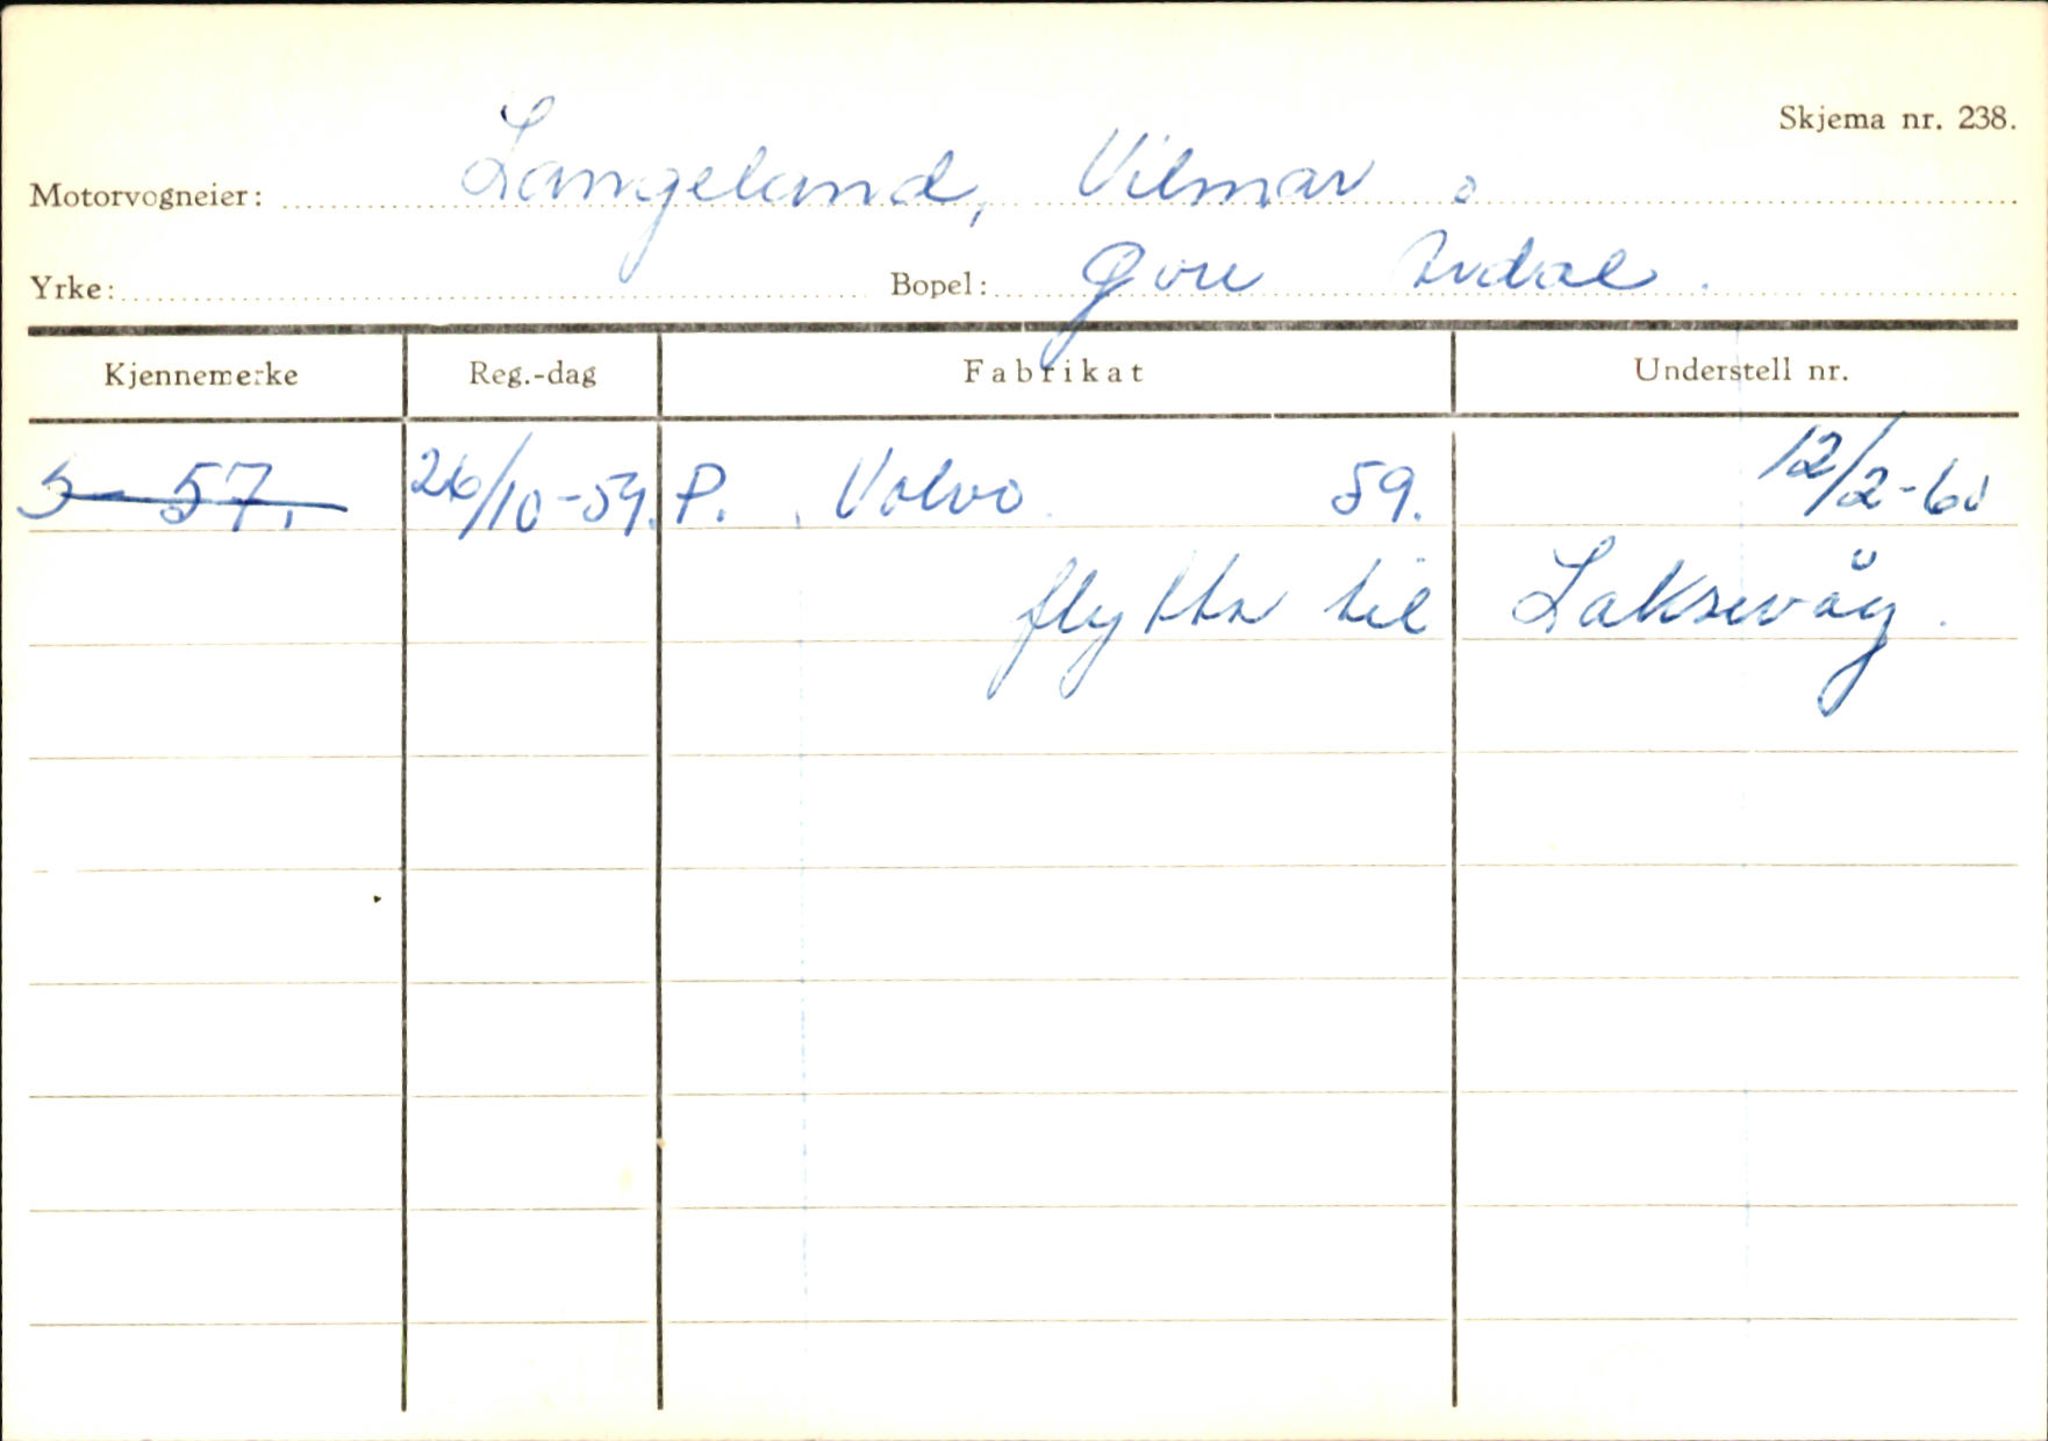 Skjema nr. 238.
Motorvogneier: Langeland, Vilmar
Yrke: Bopel: Årdal.
Kjennemerke Reg.-dag Fabrikat Understell nr.
S - 57. 26/10-59. P. Volvo 59. 12/2-60
flytta til Laksevåg.